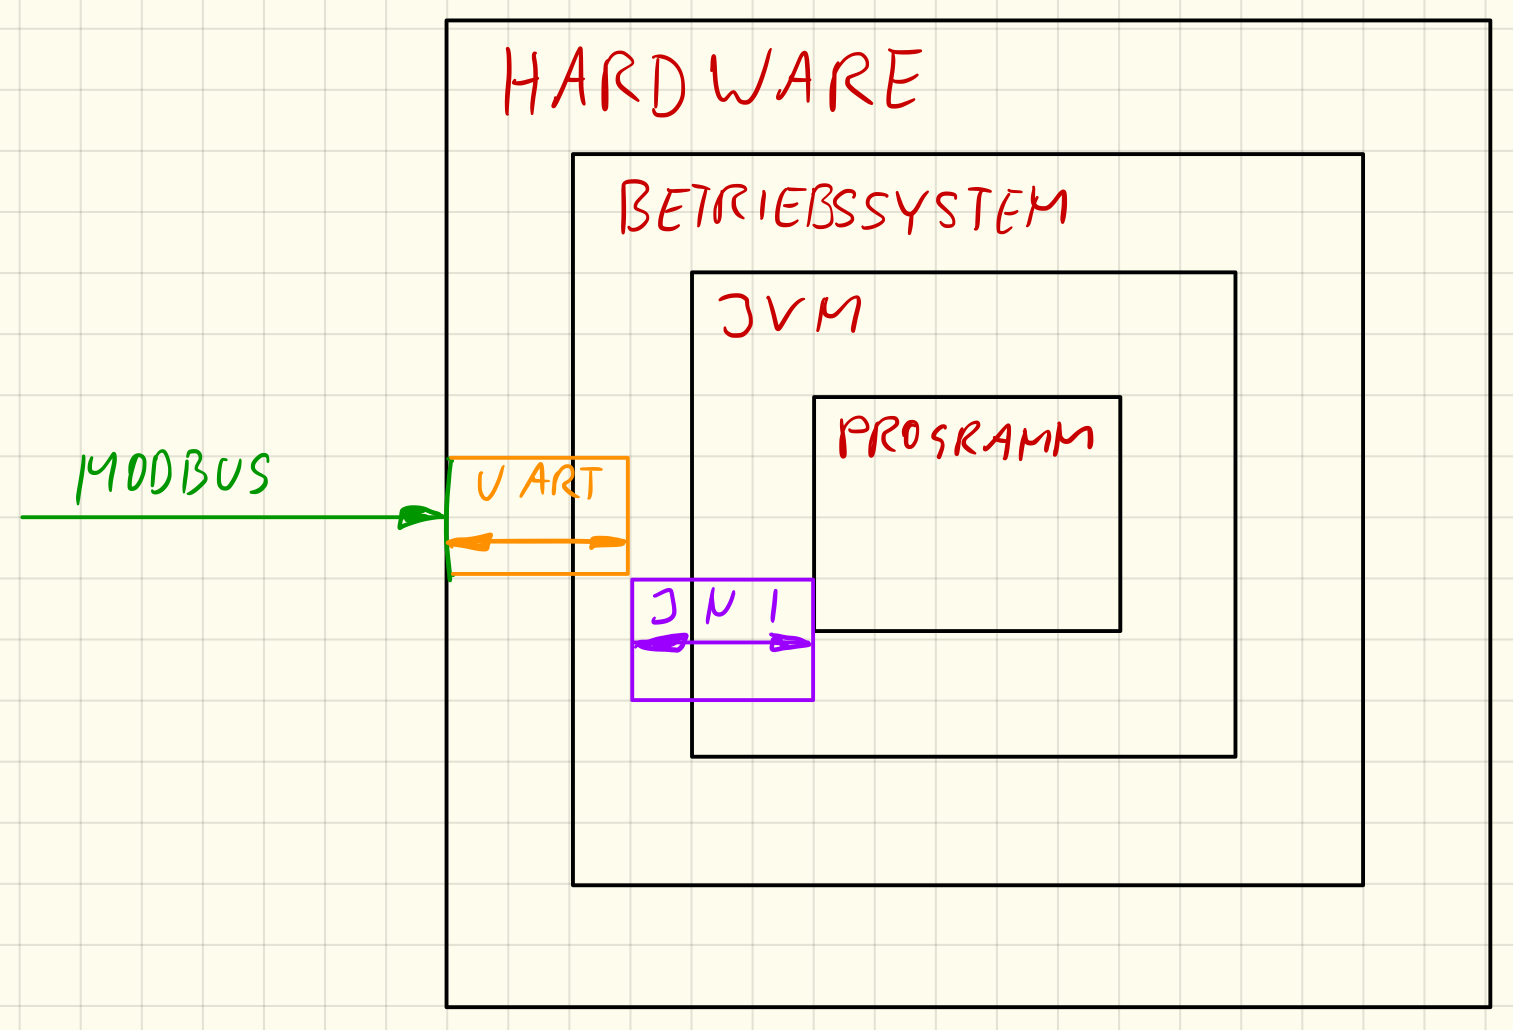 HARDWARE
BETRIEBSSYSTEM
JVM
PROGRAMM
MODBUS
UART
JNI